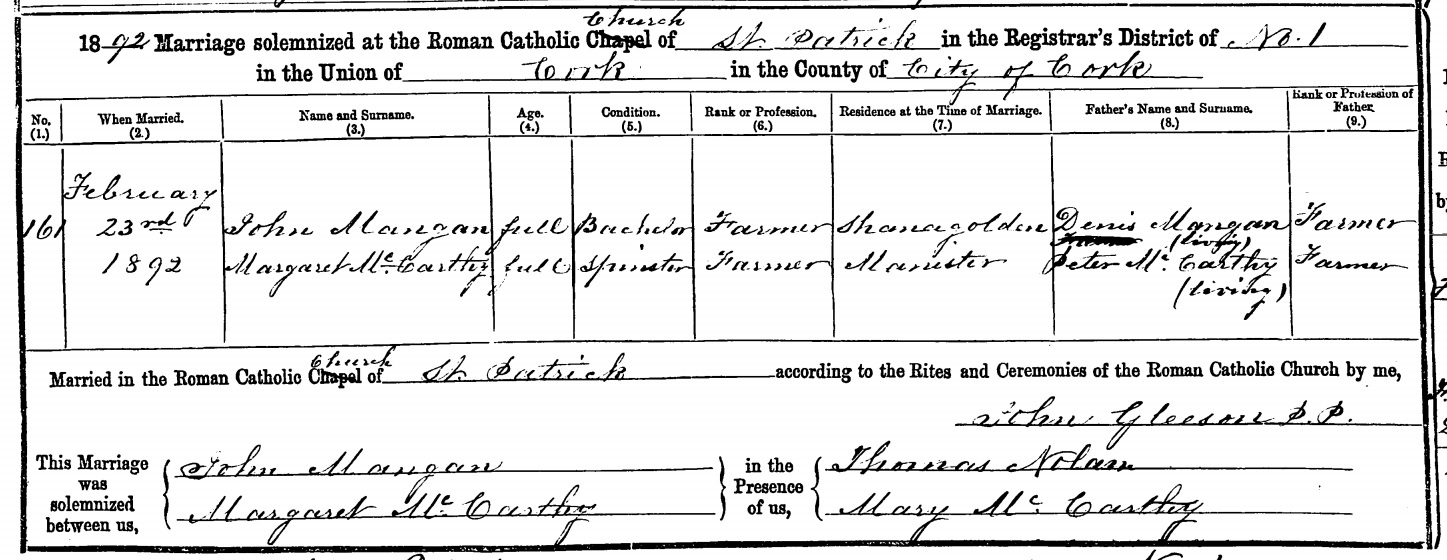 Church
1892 Marriage solemnized at the Roman Catholic Chapel of St. Patrick in the Registrar's District of No. 1
in the Union of Cork in the County of City of Cork
No. (1.) When Married. (2.) Name and Surname. (3.) Age. (4.) Condition. (5.) Rank or Profession. (6.) Residence at the Time of Marriage. (7.) Father's Name and Surname. (8.) Rank or Profession of Father. (9.)
February
161 23rd John Mangan full Bachelor Farmer Shanagolden Denis Mangan Farmer
(living)
1892 Margaret McCarthy full Spinster Farmer Manister Peter McCarthy Farmer
(living)
Church
Married in the Roman Catholic Chapel of St. Patrick according to the Rites and Ceremonies of the Roman Catholic Church by me,
John Gleeson P.P.
This Marriage was solemnized between us, John Mangan in the Presence of us, Thomas Nolan
Margaret McCarthy Mary McCarthy